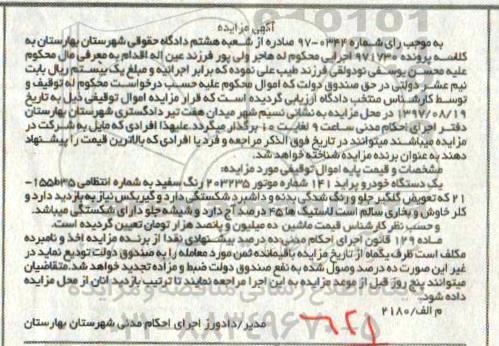 آگهی مزایده
به موجب رای شماره ۰۳۴۴-۹۷ صادره از شعبه هشتم دادگاه حقوقی شهرستان بهارستان به
کلاسه پرونده ۹۷۱۷۳۰ اجرایی محکوم له هاجر ولی پور فرزند عین اله اقدام به معرفی مال محکوم
علیه محسن یوسفی نودولقی فرزند طیب علی نموده که برابر اجرائیه و مبلغ یک بیستم ریال بابت
نیم عشر دولتی در حق صندوق دولت که اموال محکوم علیه حسب درخواست محکوم له توقیف و
توسط کارشناس منتخب دادگاه ارزیابی گردیده است که قرار مزایده اموال توقیفی ذیل به تاریخ
۱۳۹۷/۰۸/۱۹ در محل مزایده به نشانی نسیم شهر میدان هفت تیر دادگستری شهرستان بهارستان
دفتر اجرای احکام مدنی ساعت ۹ لغایت ۱۰ برگزار میگردد علیهذا افرادی که مایل به شرکت در
مزایده میباشند میتوانند در تاریخ فوق الذکر مراجعه و فرد یا افرادی که بالاترین قیمت را پیشنهاد
دهند به عنوان برنده مزایده شناخته خواهد شد.
مشخصات و قیمت پایه اموال توقیفی مورد مزایده:
یک دستگاه خودرو پراید ۱۴۱ شماره موتور ۲۰۳۲۳۵ رنگ سفید به شماره انتظامی ۳۵ط۱۵۵-
۲۱ که تعویض گلگیر جلو و رنگ شدگی بدنه و داشبرد شکستگی دارد و گیربکس نیاز به بازدید دارد و
کلر خاوش و بخاری سالم است لاستیک ها ۴۵ درصد آج دارد و شیشه جلو دارای شکستگی میباشد.
و حسب نظر کارشناس قیمت ماشین ده میلیون و پانصد هزار تومان تعیین گردیده است.
ماده ۱۲۹ قانون اجرای احکام مدنی ده درصد پیشنهادی نقدا از برنده مزایده اخذ و نامبرده
مکلف است ظرف یکماه از تاریخ مزایده باقیمانده ثمن مورد معامله را به صندوق دولت تودیع نماید در
غیر این صورت ده درصد وصول شده به نفع صندوق دولت ضبط و مزاده تجدید خواهد شد. متقاضیان
میتوانند پنج روز قبل از موعد مزایده به این اجرا مراجعه نمایند تا ترتیب بازدید انان از محل مزایده
داده شود.
م الف/۲۱۸۰
مدیر/دادورز اجرای احکام مدنی شهرستان بهارستان